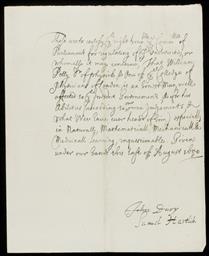 These are to certify the right hon:ble Comm:tee of
Parliament for regulating of the Universities, or
whomsoever it may concerne, That William
Petty D:r of physick & fellow of the Colledge of
Physicians of London is an honest man, well
affected to the present Government, & for his
Abilities according to our judgments &
what Wee have ever heard of him, especially
in Naturall, Mathematicall, Mechanicall &
Medicall learning unquestionable. Given
under our hands this last of August 1650
John Dury
Samuel Hartlib